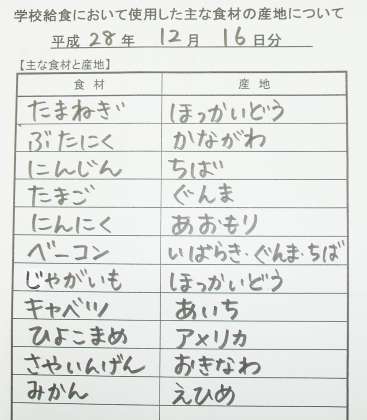 学校給食において使用した主な食材の産地について
平成 28 年 12 月 16 日分
【主な食材と産地】
食材 産地
たまねぎ ほっかいどう
ぶたにく かながわ
にんじん ちば
たまご ぐんま
にんにく あおもり
ベーコン いばらき・ぐんま・ちば
じゃがいも ほっかいどう
キャベツ あいち
ひよこまめ アメリカ
さやいんげん おきなわ
みかん えひめ